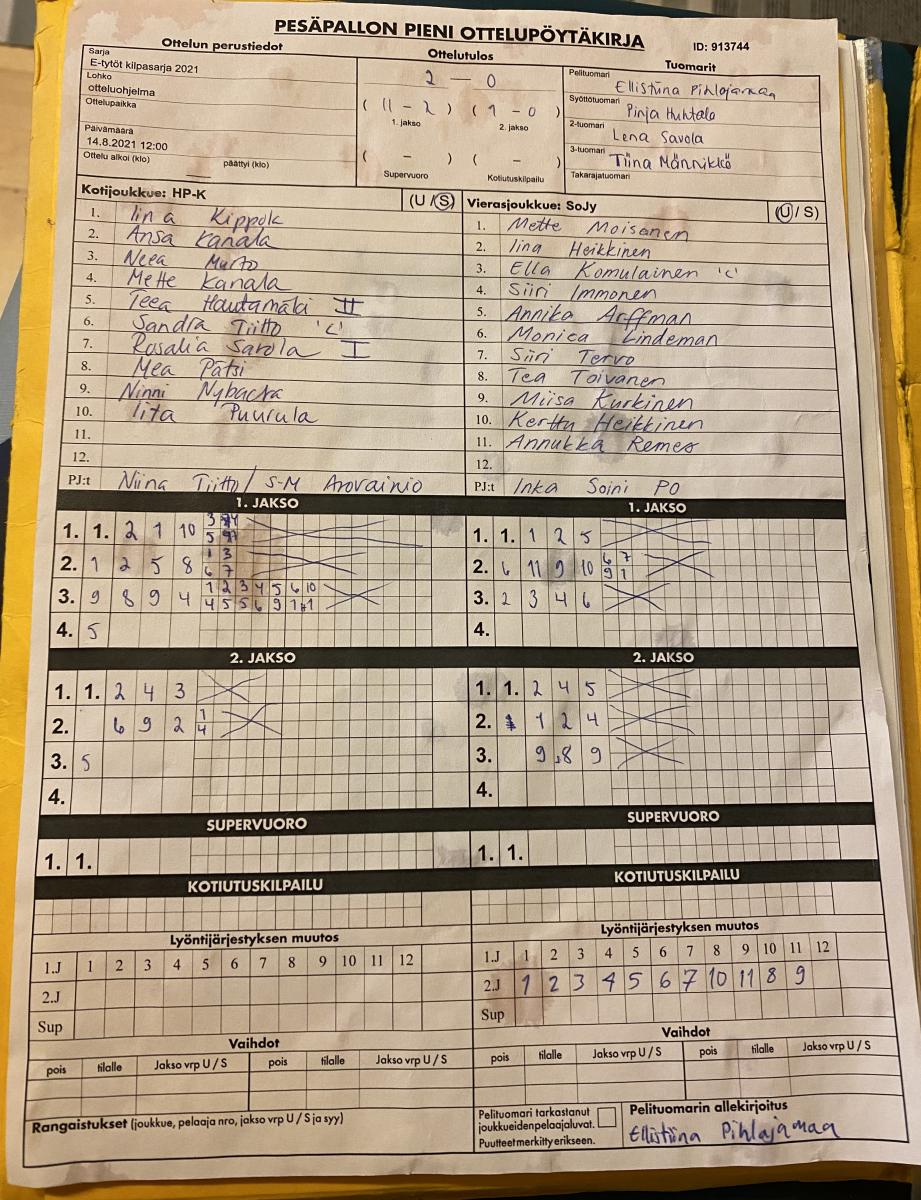 PESÄPALLON PIENI OTTELUPÖYTÄKIRJA
ID: 913744
Ottelun perustiedot
Ottelutulos
Tuomarit
Sarja
E-tytöt kilpasarja 2021
Lohko
otteluohjelma
Ottelupaikka
Päivämäärä
14.8.2021 12:00
Ottelu alkoi (klo) päättyi (klo)
2 – 0
( 11 – 2 ) ( 1 – 0 )
1. jakso 2. jakso
( – ) ( – )
Supervuoro Kotiutuskilpailu
Pelituomari Ellistiina Pihlajamaa
Syöttötuomari Pinja Huhtala
2-tuomari Lena Savola
3-tuomari Tiina Männikkö
Takarajatuomari
Kotijoukkue: HP-K (U / S)
1. Iina Kippola
2. Ansa Kanala
3. Neea Murto
4. Mette Kanala
5. Teea Hautamäki II
6. Sandra Tiitto 'C'
7. Rosalia Savola I
8. Mea Pätsi
9. Ninni Nybacka
10. Iita Puurula
11.
12.
PJ:t Niina Tiitto / S-M Arovainio
Vierasjoukkue: SoJy (U / S)
1. Mette Moisanen
2. Iina Heikkinen
3. Ella Komulainen 'C'
4. Siiri Immonen
5. Annika Arffman
6. Monica Lindeman
7. Siiri Tervo
8. Tea Toivanen
9. Miisa Kurkinen
10. Kerttu Heikkinen
11. Annukka Remes
12.
PJ:t Inka Soini PO
1. JAKSO
1. 1. 2 1 10 3 5
2. 1 2 5 8 1 3 6 7
3. 9 8 9 4 1 2 3 4 5 6 10
4 5 5 6 9 1
4. 5
1. JAKSO
1. 1. 1 2 5
2. 6 11 9 10 6 7 9 1
3. 2 3 4 6
4.
2. JAKSO
1. 1. 2 4 3
2. 6 9 2 1 4
3. 5
4.
2. JAKSO
1. 1. 2 4 5
2. 1 2 4
3. 9 8 9
4.
SUPERVUORO
1. 1.
SUPERVUORO
1. 1.
KOTIUTUSKILPAILU
KOTIUTUSKILPAILU
Lyöntijärjestyksen muutos
1.J 1 2 3 4 5 6 7 8 9 10 11 12
2.J
Sup
Lyöntijärjestyksen muutos
1.J 1 2 3 4 5 6 7 8 9 10 11 12
2.J 1 2 3 4 5 6 7 10 11 8 9
Sup
Vaihdot
pois tilalle Jakso vrp U / S pois tilalle Jakso vrp U / S
Vaihdot
pois tilalle Jakso vrp U / S pois tilalle Jakso vrp U / S
Rangaistukset (joukkue, pelaaja nro, jakso vrp U / S ja syy)
Pelituomari tarkastanut
joukkueidenpelaajaluvat.
Puutteetmerkittyerikseen.
Pelituomarin allekirjoitus
Ellistiina Pihlajamaa